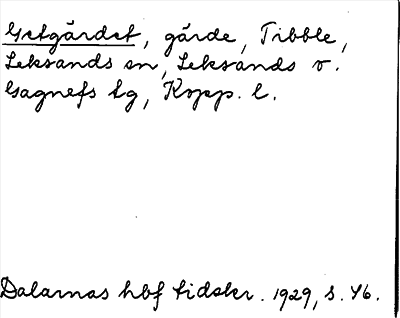 Getgärdet, gärde, Tibble,
Leksands sn, Leksands o.
Gagnefs tg, Kopp. l.
Dalarnas hbf tidskr. 1929, s. 46.